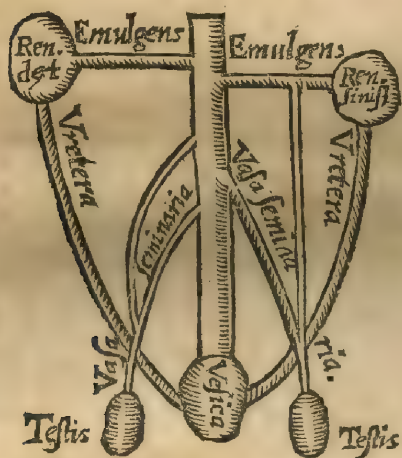 Ren.
dext
Emulgens
Emulgens
Ren
sinist
Vretera
Vasa seminaria
Vasa semina
ria.
Vretera
Vesica
Testis
Testis